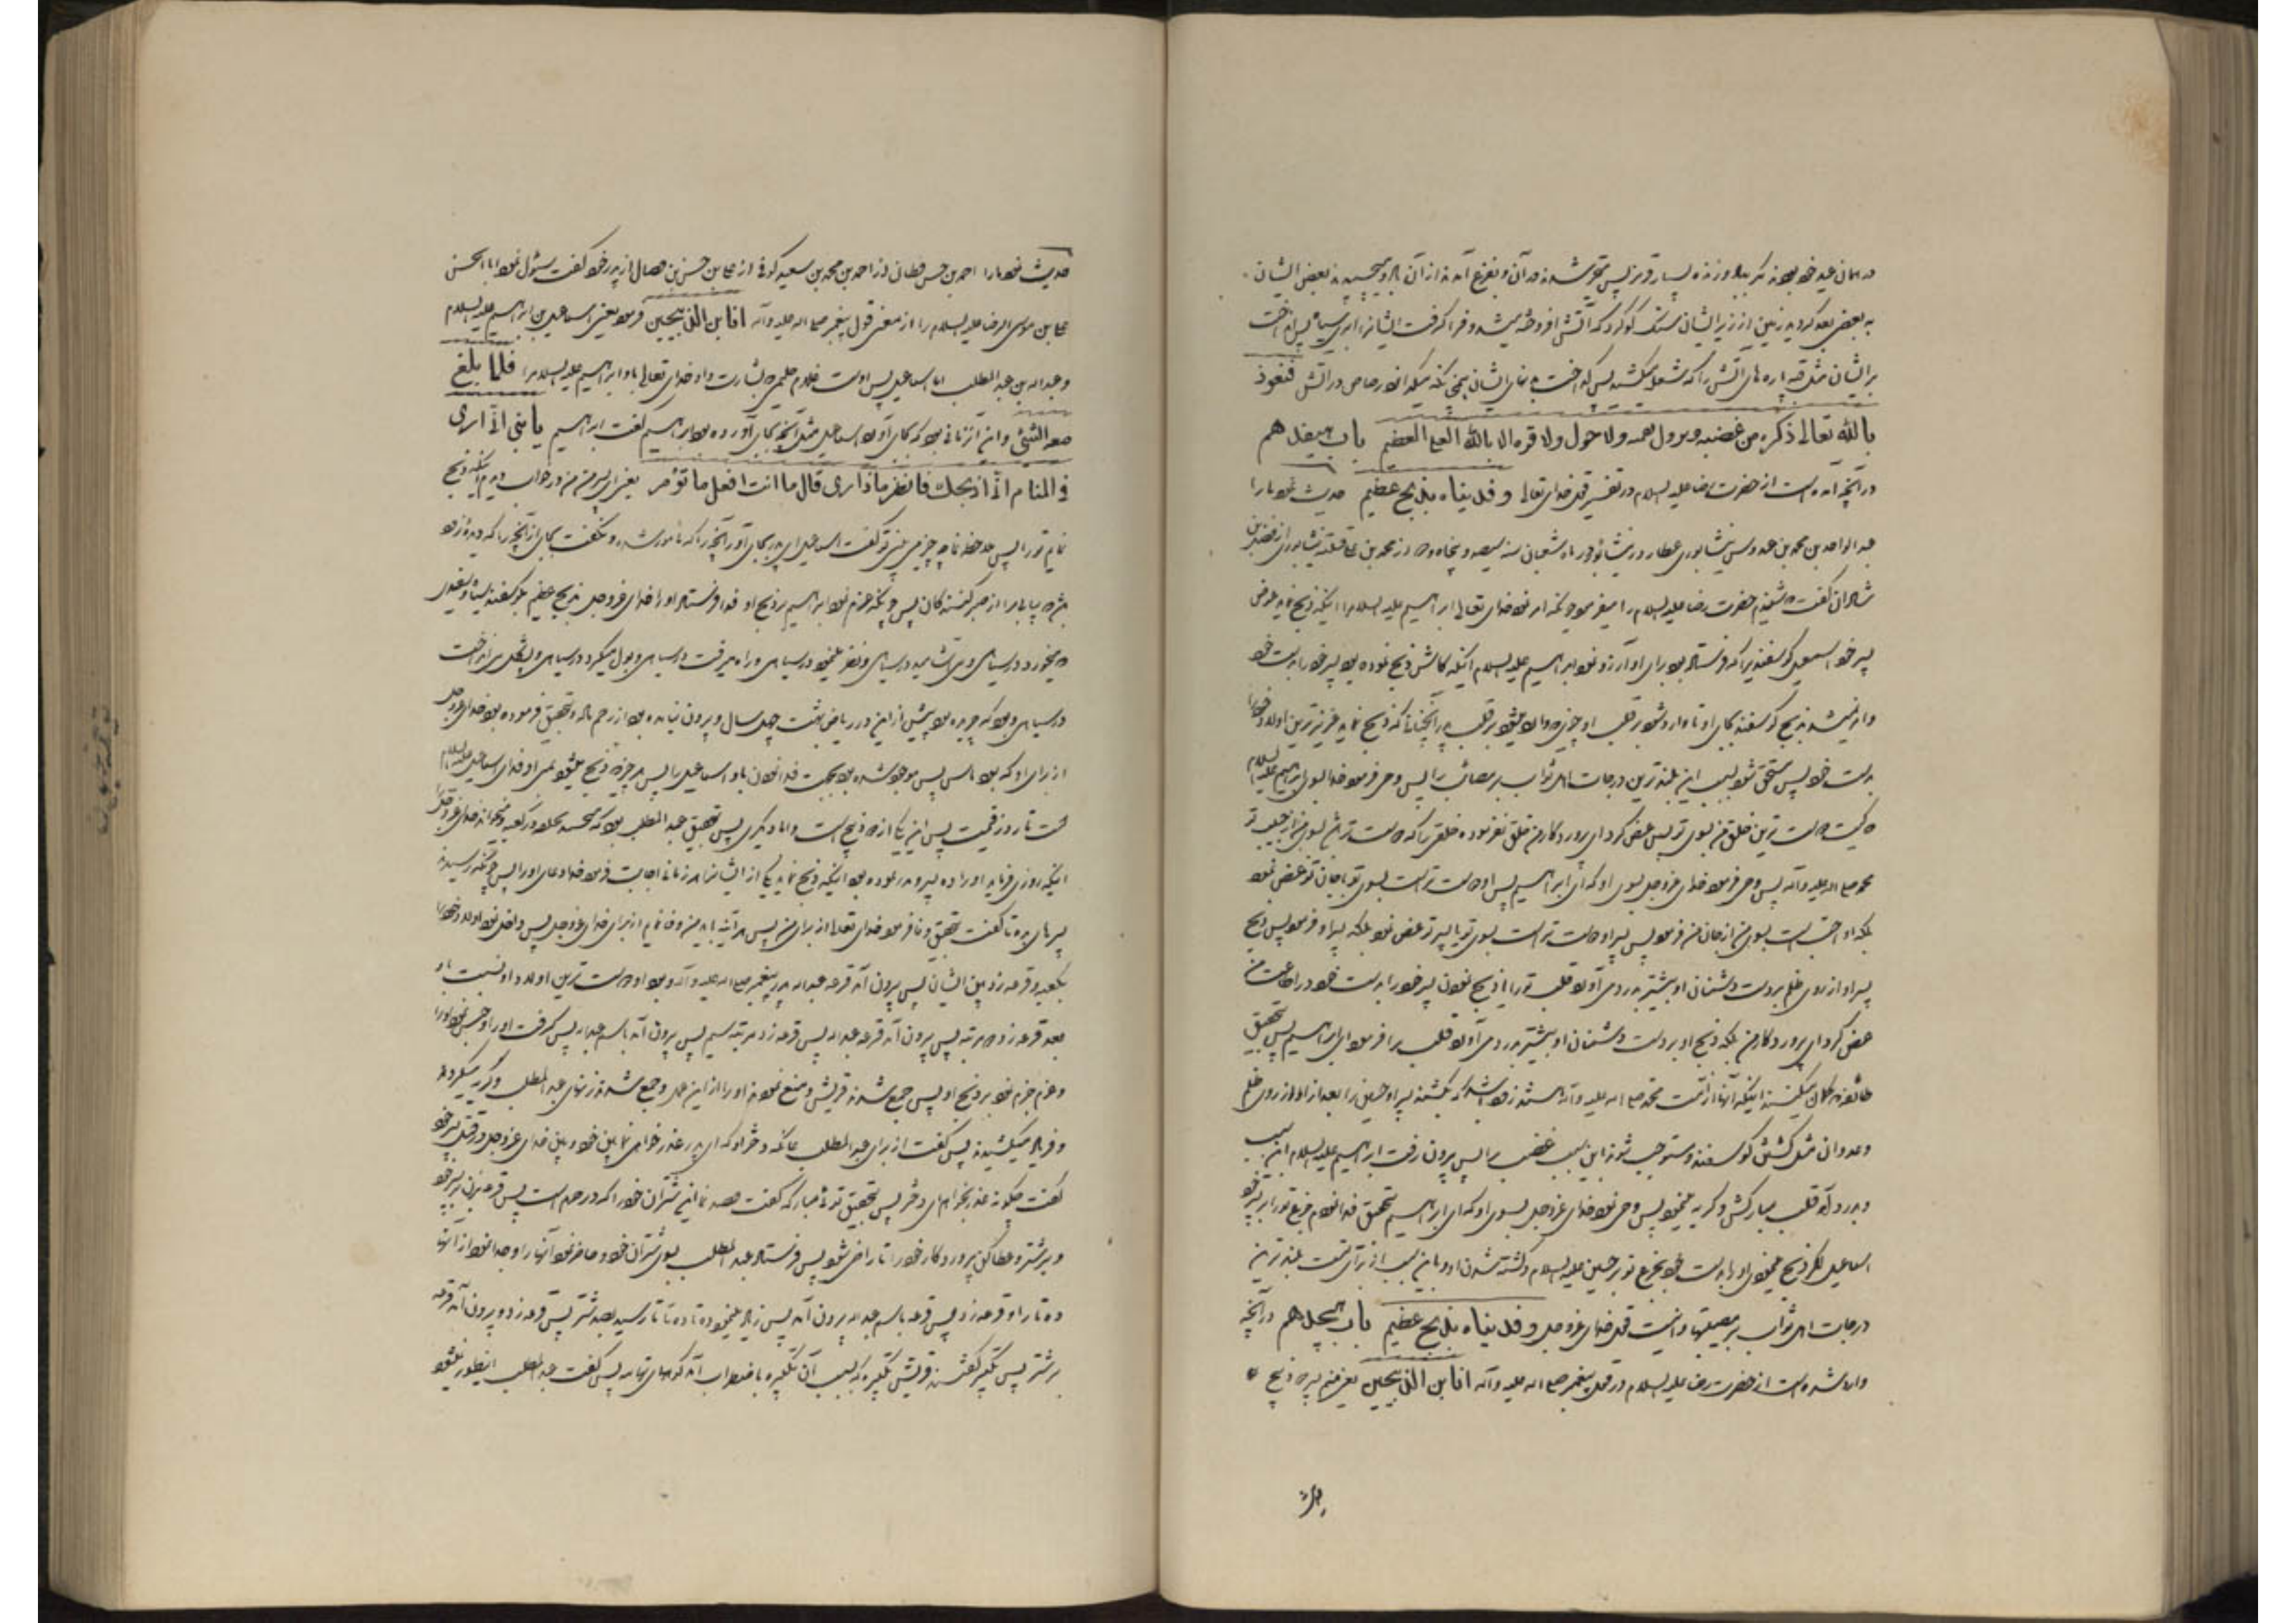 در همان عید خود بودند که
به بعضی بعد گردید زمین از زیر ایشان سنگ گوگرد که آتش افروخته میشد و فرا گرفت ایشانرا ابری سیاه پس انداخت
بر ایشان مثل قبه پاره های آتش را که شعله میکشید پس گداخت بدنهای ایشان در آتش فنعوذ
بالله تعالی ذکره من غضبه و نزول نقمته ولا حول ولا قوة الا بالله العلی العظیم باب هیفدهم
در آنچه آمده است از حضرت رضا علیه السلام در تفسیر قول خدای تعالی و فدیناه بذبح عظیم حدیث نمود ما را
عبد الواحد بن محمد بن عبدوس نیشابوری عطار در نیشابور در ماه شعبان سنه سیصد و پنجاه و دو از محمد بن علی قتیبه نیشابوری از فضل بن
شاذان گفت شنیدم حضرت رضا علیه السلام را میفرمود چونکه امر نمود خدای تعالی ابراهیم علیه السلام را اینکه ذبح نماید عوض
پسر خود اسمعیل گوسفندیرا که فرستاده بود برای او آرزو نمود ابراهیم علیه السلام اینکه کاش ذبح نموده بود پسر خود را بدست خود
بذبح گوسفند بجای او تا وارد شود بر قلب او چیزی که وارد میشود بر قلب پدر آنچنانی که ذبح نماید عزیزترین اولاد خود را
بدست خود پس مستحق شود بسبب این بلندترین درجات اهل ثواب بر مصائب را پس وحی فرمود خدا بسوی ابراهیم علیه السلام
که کیست دوست ترین خلق من بسوی تو پس عرض کرد ای پروردگار من خلق نفرموده خلقی را که دوست تر باشد بسوی من از حبیب تو
محمد صلی الله علیه وآله پس وحی فرمود خدای عزوجل بسوی او که ای ابراهیم پس او دوست تر است بسوی تو یا جان تو عرض نمود
بلکه او احب است بسوی من از جان من فرمود پس پسر او دوست تر است بسوی تو یا پسر تو عرض نمود بلکه پسر او فرمود پس ذبح
پسر او از روی ظلم بر دست دشمنان او بیشتر بدرد می آورد قلب تو را یا ذبح نمودن پسر خود را بدست خود در اطاعت من
عرض کرد ای پروردگار من بلکه ذبح او بر دست دشمنان او بیشتر بدرد می آورد قلب مرا فرمود ای ابراهیم پس بتحقیق
طائفه که گمان میکنند اینکه آنها از امت محمد صلی الله علیه وآله هستند زود باشد که بکشند پسر او حسین را بعد از او از روی ظلم
و عدوان مثل کشتن گوسفند و مستوجب شوند باین سبب غضب مرا پس بیرون رفت ابراهیم علیه السلام این سبب
و بدرد آمد قلب مبارکش و گریه مینمود پس وحی نمود خدای عزوجل بسوی او که ای ابراهیم بتحقیق فدا نمودم جزع تو را بر پسر خود
اسماعیل اگر ذبح مینمودی او را بدست خود بجزع تو بر حسین علیه السلام و کشته شدن او و باین سبب از برای تست بلندترین
درجات اهل ثواب بر مصیبتها و اینست قول خدای عزوجل و فدیناه بذبح عظیم باب هیجدهم در آنچه
وارد شده است از حضرت رضا علیه السلام در قول پیغمبر صلی الله علیه وآله انا بن الذبیحین یعنی منم پسر دو ذبیح
حدیث نمود ما را احمد بن حسن قطان از احمد بن محمد بن سعید کوفی از علی بن حسن بن فضال از پدر خود گفت سئوال نمود ابا الحسن
علی بن موسی الرضا علیه السلام را از معنی قول پیغمبر صلی الله علیه وآله انا بن الذبیحین فرمود یعنی اسماعیل بن ابراهیم علیه السلام
و عبد الله بن عبد المطلب اما اسماعیل پس اوست غلام حلیمی که بشارت داد خدای تعالی باو ابراهیم علیه السلام را فلما بلغ
معه السعی و این از زمانی بود که بجای آورد اسماعیل مثل آنچه بجای آورده بود ابراهیم گفت ابراهیم یا بنی انی اری
فی المنام انی اذبحک فانظر ماذا تری قال یا ابت افعل ما تؤمر یعنی ای پسر من من در خواب دیدم اینکه ذبح
نمایم تو را پس ملاحظه نما چه چیز می بینی تو گفت اسماعیل ای پدر بجای آور آنچه را که مامور شده و نگفت بجای آر آنچه را که دیده زود
باشد بیابی مرا از صبر کنندگان پس چونکه عزم نمود ابراهیم بر ذبح او فدا فرستاد او را خدای عزوجل بذبح عظیم بگوسفند سیاه و سفیدی
که میخورد در سیاهی و می آشامید در سیاهی و نظر مینمود در سیاهی و راه میرفت در سیاهی و بول میکرد در سیاهی و پشکل می انداخت
در سیاهی و بود که چریده بود پیش از این در ریاض بهشت چهل سال و بیرون نیامده بود از رحم ماده و بتحقیق فرموده بود خدای عزوجل
از برای او که بود باش پس موجود شده بود بجهت فدا نمودن باو اسماعیل را پس هر چیزی که ذبح میشود بمنی او فدای اسماعیل علیه السلام
است تا روز قیمت پس این یکی از دو ذبیح است و اما دیگری پس بتحقیق عبد المطلب بود که چسبید بحلقه در کعبه و میخواند خدای عزوجل را
اینکه روزی فرماید او را ده پسر و نذر نموده بود اینکه ذبح نماید یکی از ایشانرا در زمانی اجابت فرمود خدا دعای او را پس چونکه رسیدند
پسرهای ده تا گفت بتحقیق وفا فرمود خدای تعالی از برای من پس هر آینه باید من وفا نمایم از برای خدای عزوجل پس داخل نمود اولاد خود را
بکعبه و قرعه زد بین ایشان پس بیرون آمد قرعه عبد الله پدر پیغمبر صلی الله علیه وآله و بود او دوست ترین اولاد او نسبت باو
بعد قرعه زد دو مرتبه پس بیرون آمد قرعه عبد الله پس قرعه زد مرتبه سیم پس بیرون آمد باسم عبد الله پس گرفت او را و حبس نمود او را
و عزم جزم نمود بر ذبح او پس جمع شدند قریش و منع نمودند او را از این عمل و جمع شدند زنهای عبد المطلب و گریه میکردند
و فریاد میکشیدند پس گفت از برای عبد المطلب عاتکه دختر او که ای پدر عذر خواهی نما بین خود و بین خدای عزوجل در قتل پسر خود
گفت چگونه عذر بخواهم ای دختر پس بتحقیق تو مبارکه گفت قصد نما این شتران خود را که در حرم است پس قرعه بزن بر پسر خود
و بر شتر و عطا کن پروردگار خود را تا راضی شود پس فرستاد عبد المطلب بسوی شتران خود و حاضر نمود آنها را و جدا نمود از آنها
ده تا را و قرعه زد پس قرعه باسم عبد الله بیرون آمد پس زیاد مینمود ده تا ده تا تا رسید بصد شتر پس قرعه زد و بیرون آمد قرعه
بر شتر پس تکبیر گفتند قریش تکبیری که بسبب آن تکبیر باضطراب آمد کوههای تهامه پس گفت عبد المطلب اینطور نمیشود